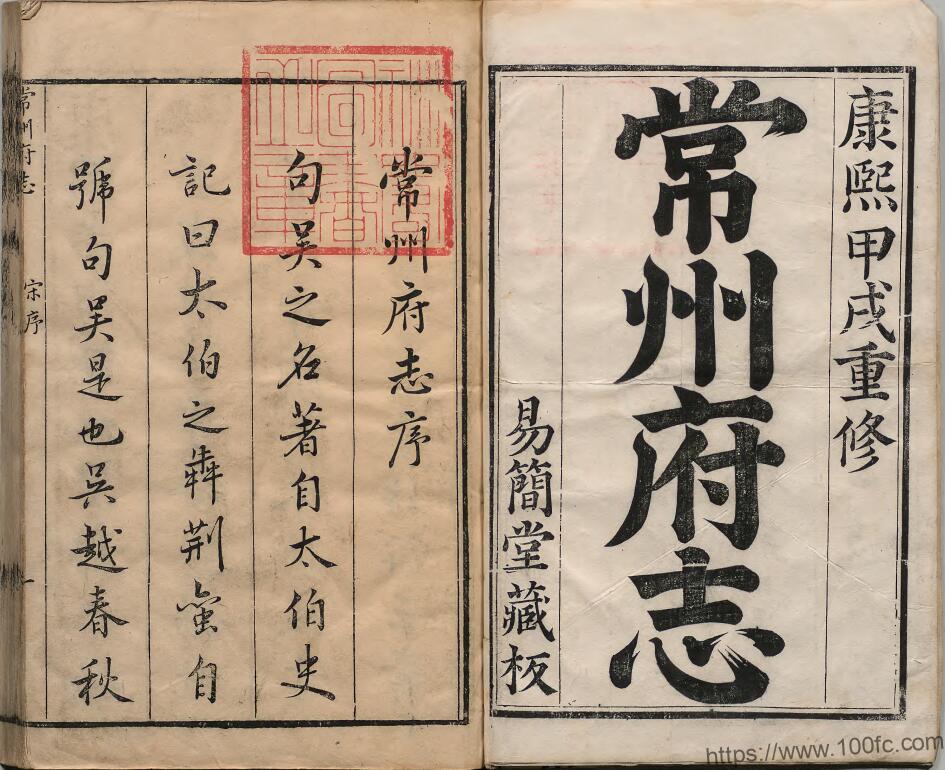 康熙甲戌重修
常州府志
易簡堂藏板
常州府志序
句吳之名著自太伯史
記曰太伯之犇荆蛮自
號句吳是也吳越春秋
常州府志 宋序 一
https://www.100fc.com